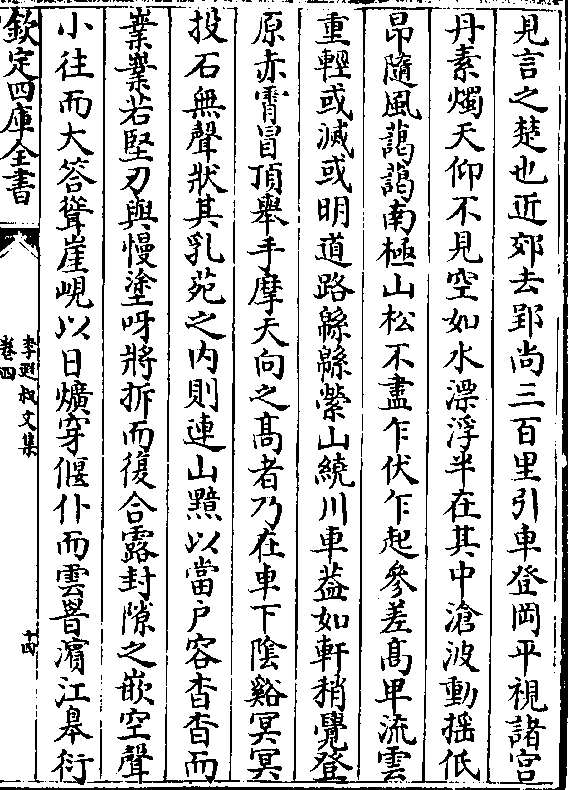 見言之楚也近郊去郢尚三百里引車登岡平視諸宫
丹素燭天仰不見空如水漂浮半在其中滄波動揺低
昂隨風藹藹南極山松不盡乍伏乍起參差髙卑流雲
重輕或滅或明道路緜緜縈山繞川車葢如軒稍覺登
原赤霄冒頂舉手摩天向之髙者乃在車下陰谿冥冥
投石無聲狀其乳苑之内則連山黶以當户容杳杳而
業業若堅刃與慢塗呀將拆而復合露封隙之嵌空聲
小往而大答聳崖峴以日爌穿偃仆而雲瞢濵江皋衍
欽定四庫全書
李遐叔文集
卷四
十四